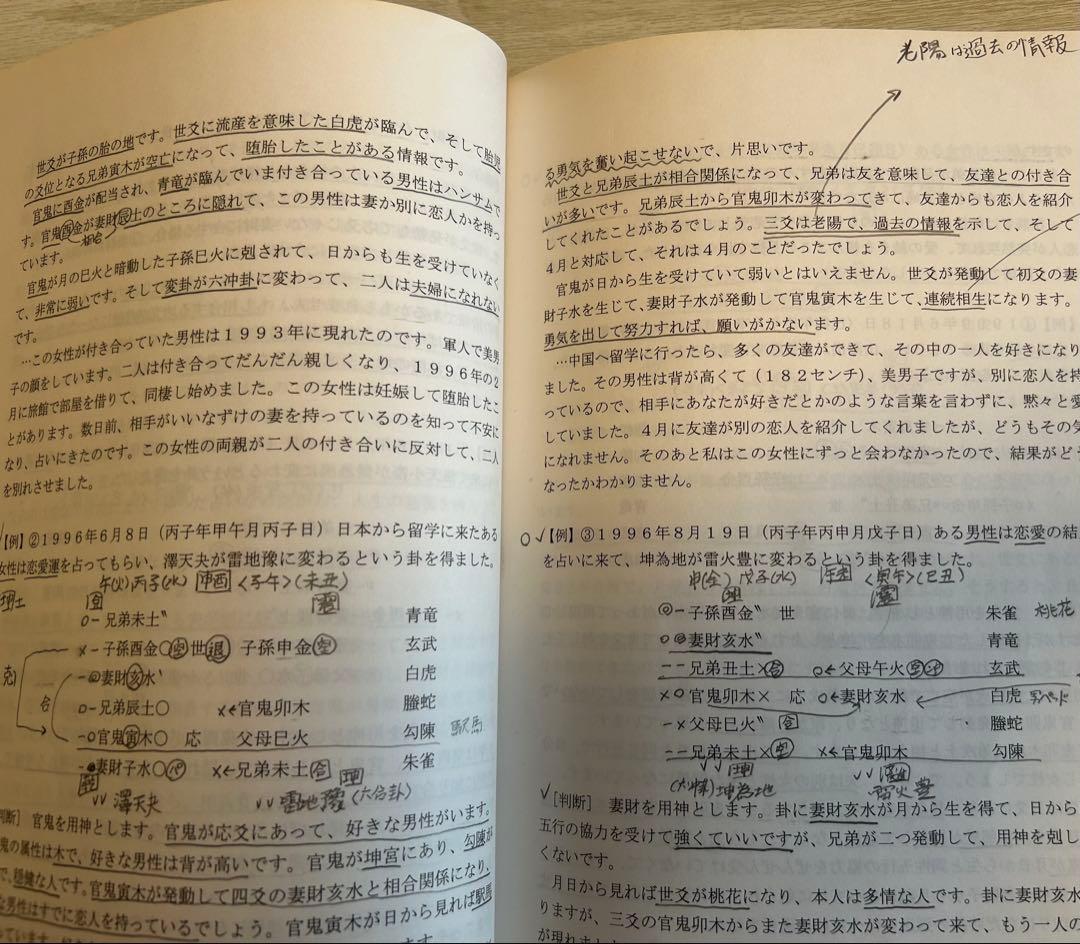 世爻が子孫の胎の地です。世爻に流産を意味した白虎が臨んで、そして胎児
の爻位となる兄弟寅木が空亡になって、堕胎したことがある情報です。
官鬼に酉金が配当され、青竜が臨んでいま付き合っている男性はハンサムで
す。官鬼酉金が妻財辰土のところに隠れて、この男性は妻か別に恋人かを持っ
相合
ています。
官鬼が月の巳火と暗動した子孫巳火に剋されて、日からも生を受けていなく
て、非常に弱いです。そして変卦が六冲卦に変わって、二人は夫婦になれない
です。
…この女性が付き合っていた男性は1993年に現れたのです。軍人で美男
子の顔をしています。二人は付き合ってだんだん親しくなり、1996年の2
月に旅館で部屋を借りて、同棲し始めました。この女性は妊娠して堕胎したこ
とがあります。数日前、相手がいいなずけの妻を持っているのを知って不安に
なり、占いにきたのです。この女性の両親が二人の付き合いに反対して、二人
を別れさせました。
【例】②1996年6月8日（丙子年甲午月丙子日）日本から留学に来たある
女性は恋愛運を占ってもらい、澤天夬が雷地豫に変わるという卦を得ました。
午(火)丙子(水) 申酉 〈子午〉(未丑)
兄弟未土〃 青竜
×－子孫酉金〇空世退 子孫申金空 玄武
妻財亥水〃 白虎
兄弟辰土〇 ×←官鬼卯木 螣蛇
官鬼寅木〇 応 父母巳火 勾陳 駅馬
妻財子水〇 ×←兄弟未土合 朱雀
剋
合
澤天夬 雷地豫(六合卦)
判断］ 官鬼を用神とします。官鬼が応爻にあって、好きな男性がいます。
鬼の属性は木で、好きな男性は背が高いです。官鬼が坤宮にあり、勾陳が
で、穏健な人です。官鬼寅木が発動して四爻の妻財亥水と相合関係になり、
な男性はすでに恋人を持っているでしょう。官鬼寅木が日から見れば駅馬
老陽は過去の情報
る勇気を奮い起こせないで、片思いです。
世爻と兄弟辰土が相合関係になって、兄弟は友を意味して、友達との付き合
いが多いです。兄弟辰土から官鬼卯木が変わってきて、友達からも恋人を紹介
してくれたことがあるでしょう。三爻は老陽で、過去の情報を示して、そして
4月と対応して、それは4月のことだったでしょう。
官鬼が日から生を受けていて弱いとはいえません。世爻が発動して初爻の妻
財子水を生じて、妻財子水が発動して官鬼寅木を生じて、連続相生になります。
勇気を出して努力すれば、願いがかないます。
…中国へ留学に行ったら、多くの友達ができて、その中の一人を好きになり
ました。その男性は背が高くて（182センチ）、美男子ですが、別に恋人を持
っているので、相手にあなたが好きだとかのような言葉を言わずに、黙々と愛
していました。4月に友達が別の恋人を紹介してくれましたが、どうもその気
になれません。そのあと私はこの女性にずっと会わなかったので、結果がどう
なったかわかりません。
【例】③1996年8月19日（丙子年丙申月戊子日）ある男性は恋愛の結
を占いに来て、坤為地が雷火豊に変わるという卦を得ました。
申(金) 戊子(水) 〈寅午〉(巳丑)
子孫酉金〃 世 朱雀 桃花
妻財亥水〃 青竜
兄弟丑土×合 〇←父母午火 玄武
×〇官鬼卯木× 応 〇←妻財亥水 白虎
－×父母巳火〃 合 螣蛇
兄弟未土× ×←官鬼卯木 勾陳
(六冲)坤為地 雷火豊
［判断］ 妻財を用神とします。卦に妻財亥水が月から生を得て、日から
五行の協力を受けて強くていいですが、兄弟が二つ発動して、用神を剋し
くないです。
月日から見れば世爻が桃花になり、本人は多情な人です。卦に妻財亥水
りますが、三爻の官鬼卯木からまた妻財亥水が変わって来て、もう一人の